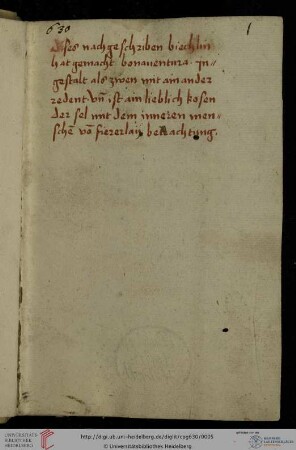 630
1
Dises nachgeschriben biechlin
hat gemacht bonauentura. In
gestalt als zwen mit ainander
redent vn̄ ist ain lieblich kosen
der sel mit dem inneren men-
schē vō fiererlaÿ betrachtung.
http://digi.ub.uni-heidelberg.de/diglit/cpg630/0005
© Universitätsbibliothek Heidelberg
UNIVERSITÄTS-
BIBLIOTHEK
HEIDELBERG